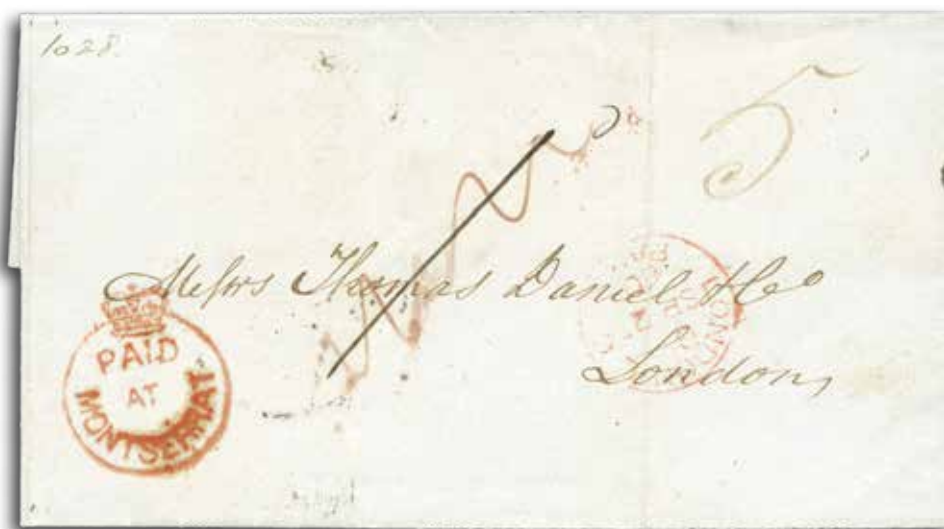 1028.
5
Messrs Thomas Daniel & Co
London,
PAID
AT
MONTSERRAT